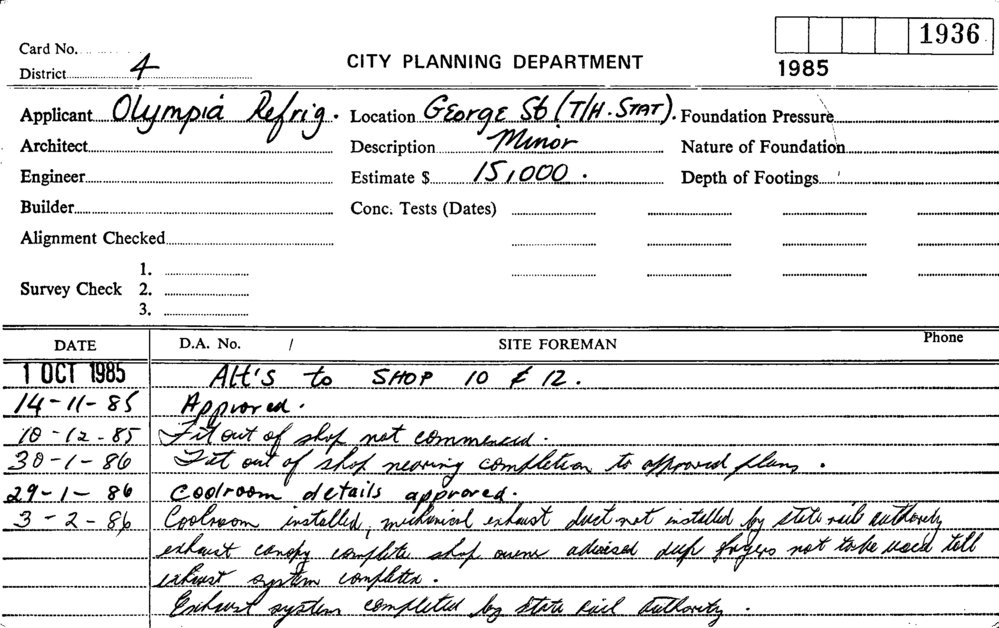 1936
Card No.
District 4
CITY PLANNING DEPARTMENT
1985
Applicant Olympia Refrig. Location George St (T/H. STAT). Foundation Pressure
Architect Description Minor Nature of Foundation
Engineer Estimate $ 15,000. Depth of Footings
Builder Conc. Tests (Dates)
Alignment Checked
1.
Survey Check 2.
3.
DATE D.A. No. / SITE FOREMAN Phone
1 OCT 1985 Alt's to SHOP 10 & 12.
14-11-85 Approved.
10-12-85 Fit out of shop not commenced.
30-1-86 Fit out of shop nearing completion to approved plans.
29-1-86 Coolroom details approved.
3-2-86 Coolroom installed, mechanical exhaust duct not installed by state rail authority
exhaust canopy complete shop owner advised deep fryers not to be used till
exhaust system completed.
Exhaust system completed by State Rail Authority.